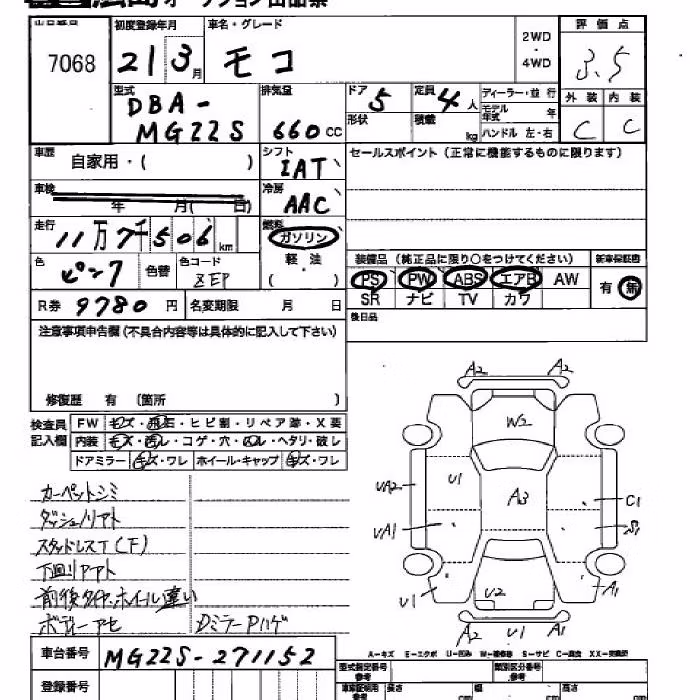 オークション出品票
出品番号 初度登録年月 車名・グレード 評価点
7068 21 3月 モコ 2WD・4WD 3.5
型式 排気量 ドア 定員 ディーラー・並行 外装 内装
DBA-MG22S 660cc 5 4人 モデル年式 年 C C
形状 積載 kg ハンドル 左・右
車歴 シフト セールスポイント（正常に機能するものに限ります）
自家用・（ ） IAT
車検 冷房
年 月( 日) AAC
走行 燃料
11万7千506km ガソリン
軽・油
（ ）
色 色替 色コード
ピンク ZEP
装備品（純正品に限り○をつけてください） 新車保証書
PS PW ABS エアB AW 有・無
SR ナビ TV カワ
R券 9780円 名変期限 月 日
後日品
注意事項申告欄（不具合内容等は具体的に記入して下さい）
修復歴 有 〔箇所 〕
検査員記入欄 FW キズ・飛石・ヒビ割・リペア跡・X要
内装 キズ・汚レ・コゲ・穴・ヘタリ・破レ
ドアミラー キズ・ワレ ホイール・キャップ キズ・ワレ
カーペットシミ
ダッシュノリアト
スタッドレスT(F)
下回りアト
前後タイヤ・ホイール違い
ボディーアセ DミラーPハゲ
A2 A2
W2
UA2 U1 A3 C1
UA1 S1
U1 U2 A1
A2 U1 A1
A-キズ E-エクボ U-凹み W-補修跡 S-サビ C-腐食 XX-交換済
車台番号 MG22S-271152
登録番号
型式指定番号 参考 類別区分番号 参考
長さ cm 幅 cm 高さ cm